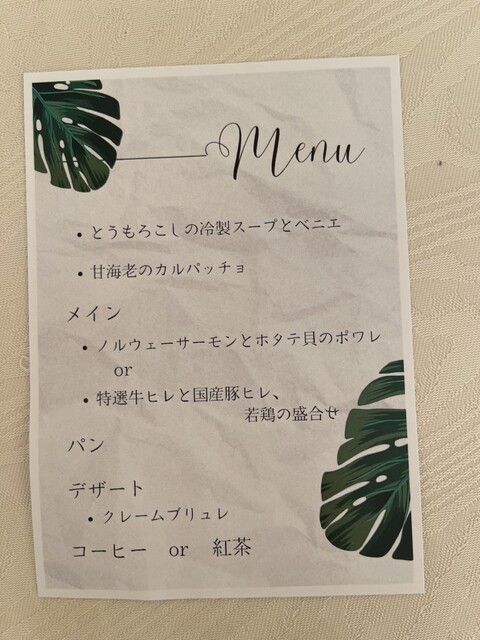 Menu
・とうもろこしの冷製スープとベニエ
・甘海老のカルパッチョ
メイン
・ノルウェーサーモンとホタテ貝のポワレ
or
・特選牛ヒレと国産豚ヒレ、
若鶏の盛合せ
パン
デザート
・クレームブリュレ
コーヒー or 紅茶